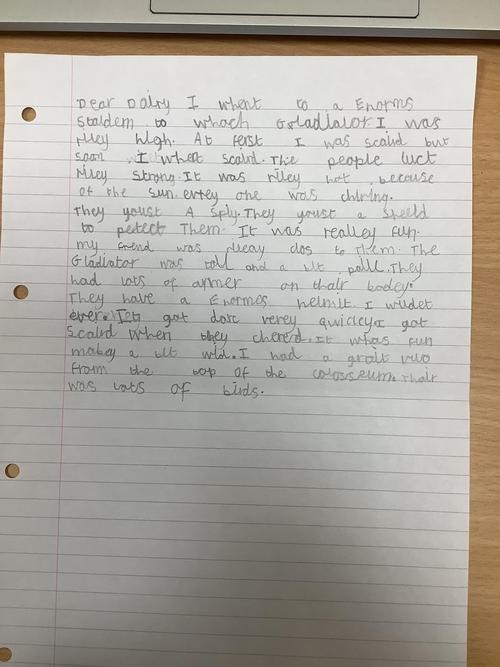 Dear Dairy I whent to a Enorms
Staldem to whach Gladiator I was
riley high. At ferst I was scaird but
soon I whent scaird. The people luct
riley strong. It was riley hot because
of the sun. evrey one was chiring.
They youst A Sply. They youst a sheeld
to pertect Them. It was realley fun.
my friend was rileay clos to them. The
Gladiator was tall and a ult pall. They
had lots of armer on thair bodey.
They have a Enormes helmit. I wudet
ever. It got darc verey quicley I got
Scaird when they chered. It whas fun
makeg a ult wid. I had a grait vuo
from the top of the colosseum. Thair
was lots of birds.